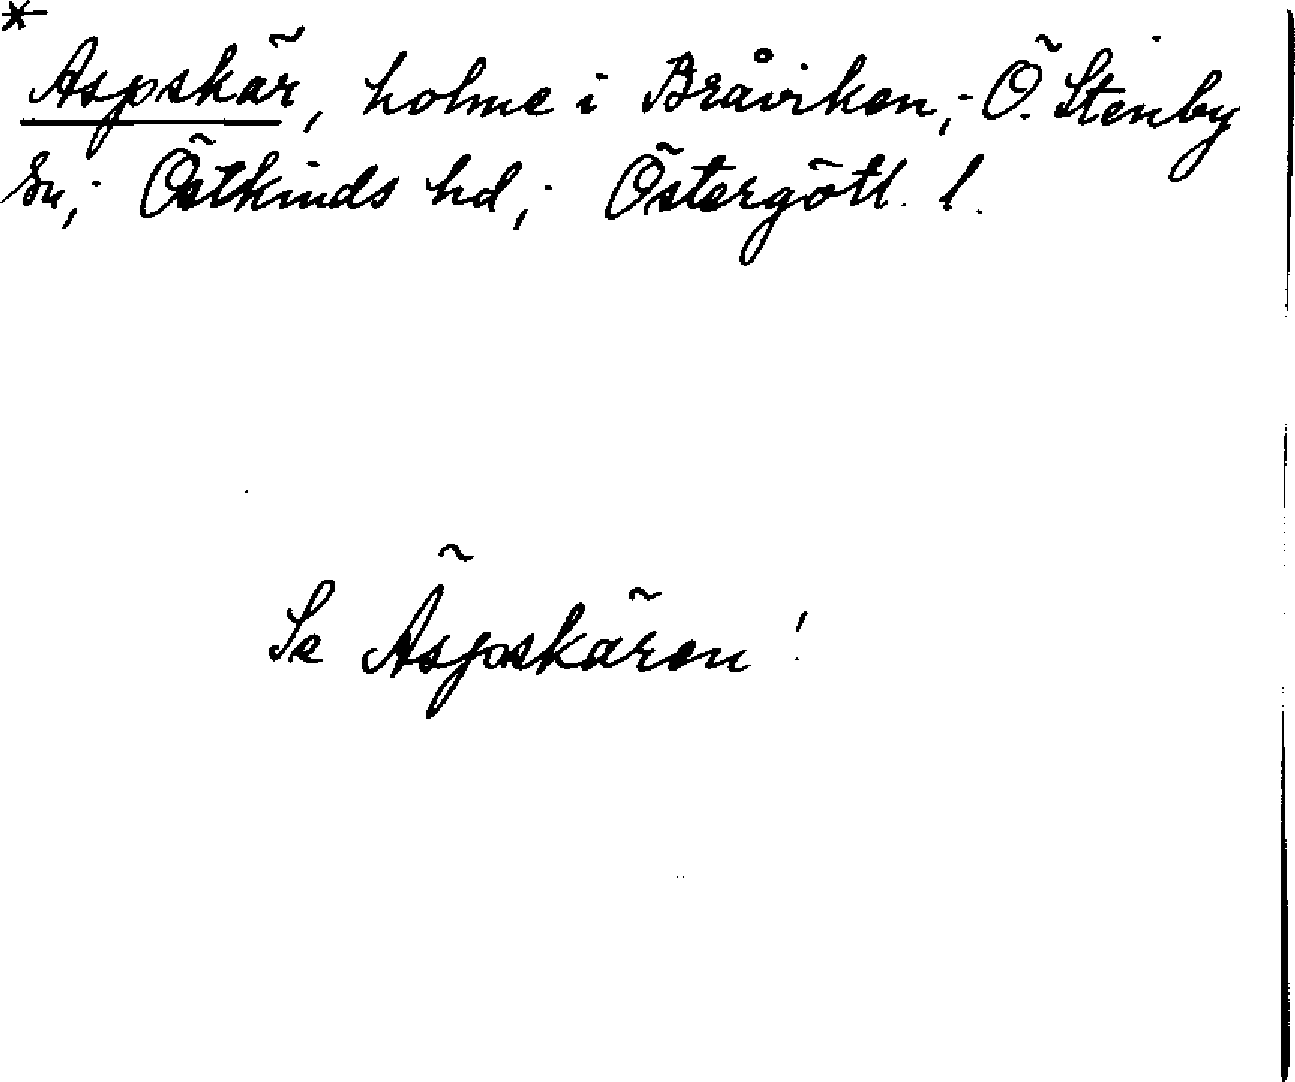 *
Aspskär, holme i Bråviken, Ö. Stenby
sn, Östkinds hd, Östergötl. l.
Se Äspskären!